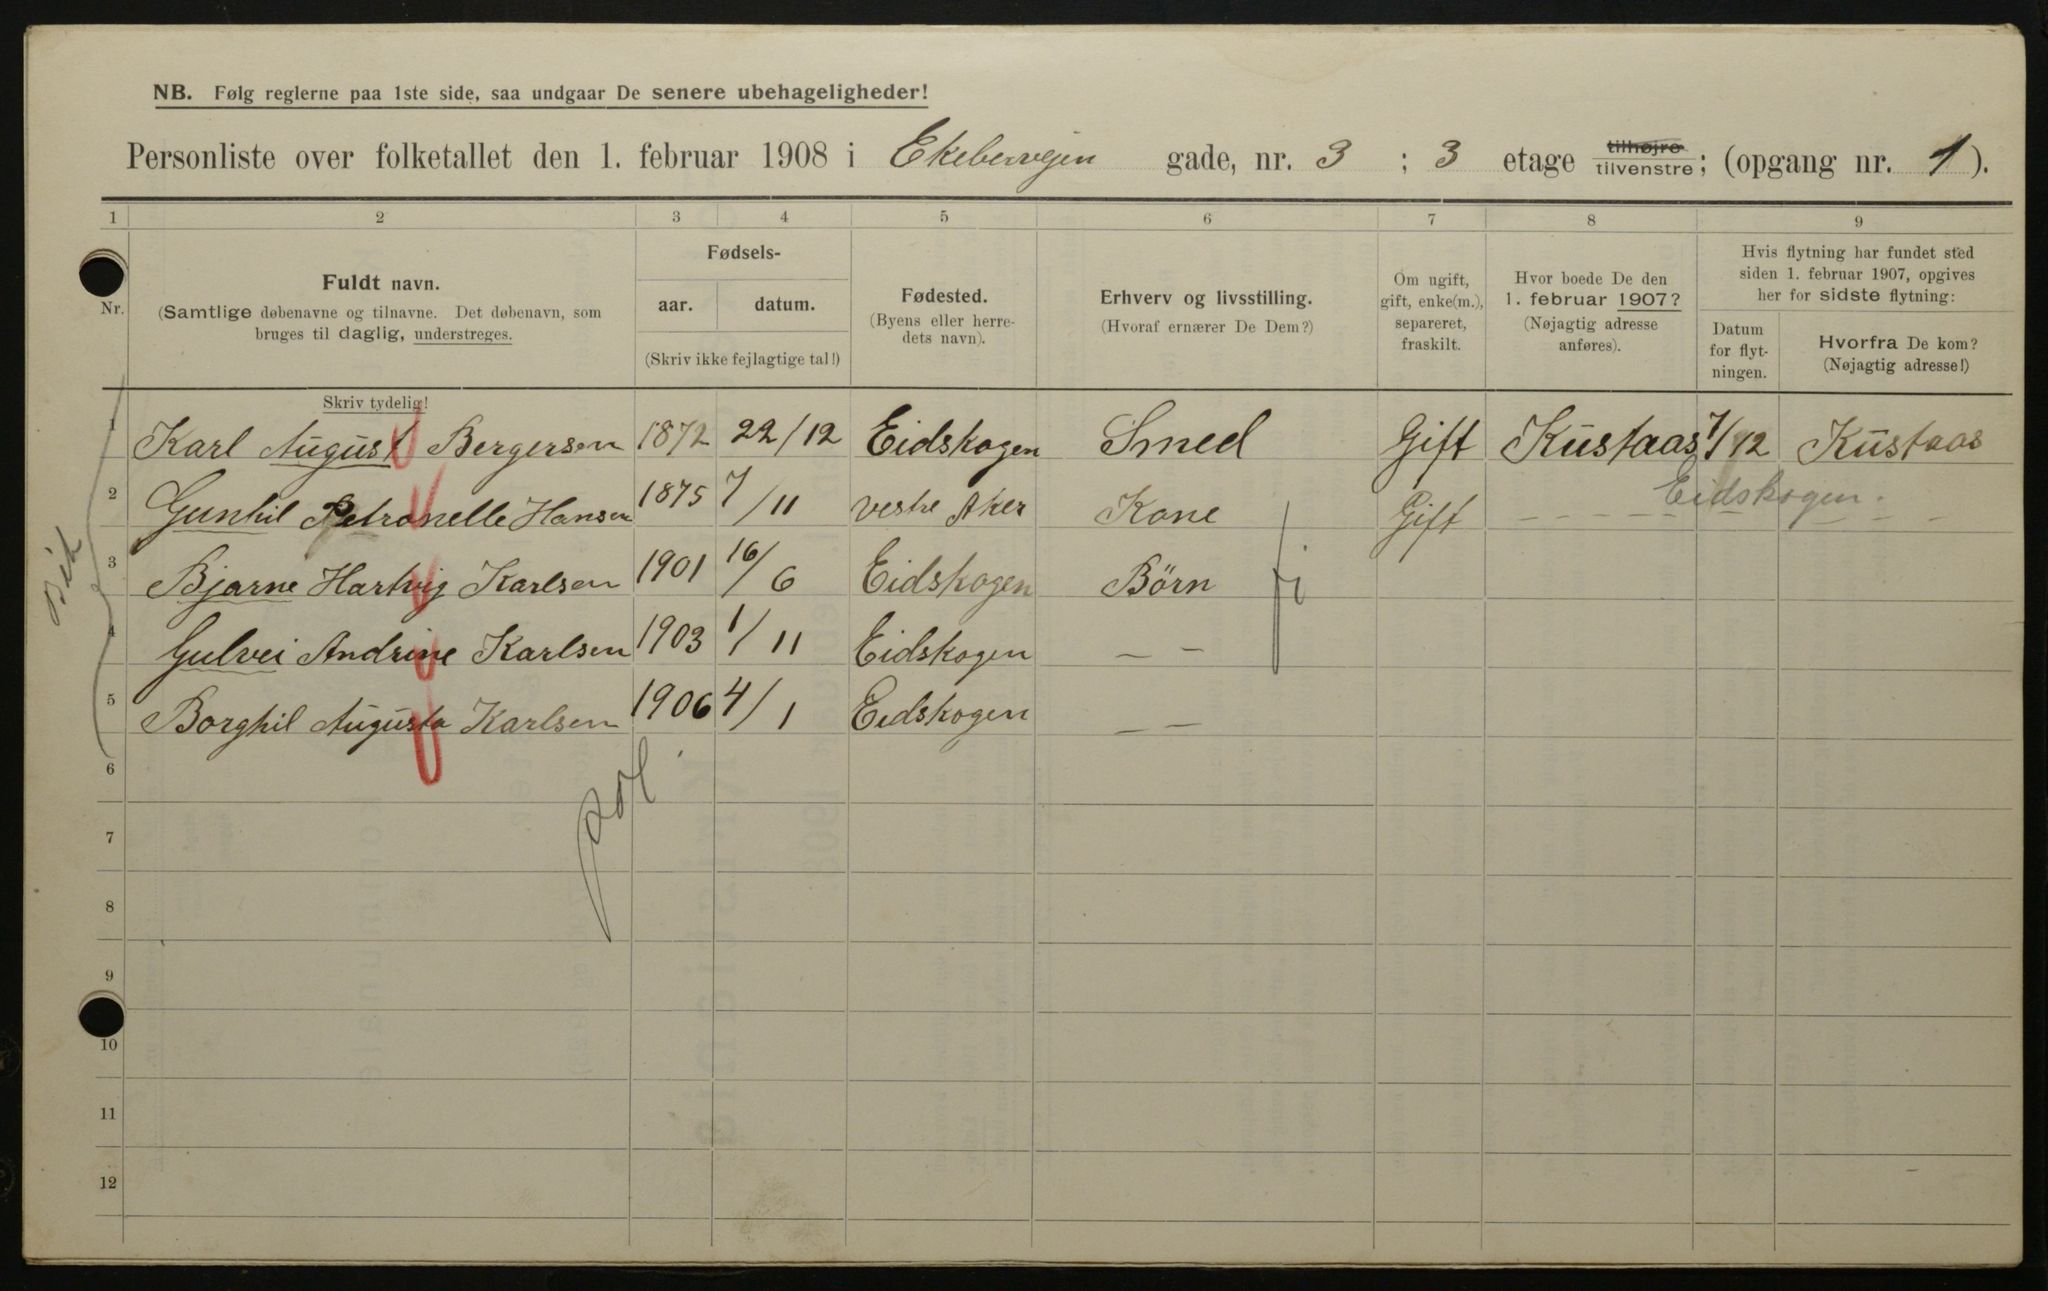 NB. Følg reglerne paa 1ste side, saa undgaar De senere ubehageligheder!
Personliste over folketallet den 1. februar 1908 i Ekebervejen gade, nr. 3 ; 3 etage tilhøjre tilvenstre; (opgang nr. 1).
1 2 3 4 5 6 7 8 9
Nr.
Fuldt navn.
(Samtlige døbenavne og tilnavne. Det døbenavn, som
bruges til daglig, understreges.
Skriv tydelig!
Fødsels-
aar. datum.
(Skriv ikke fejlagtige tal!)
Fødested.
(Byens eller herre-
dets navn).
Erhverv og livsstilling.
(Hvoraf ernærer De Dem?)
Om ugift,
gift, enke(m.),
separeret,
fraskilt.
Hvor boede De den
1. februar 1907?
(Nøjagtig adresse
anføres).
Hvis flytning har fundet sted
siden 1. februar 1907, opgives
her for sidste flytning:
Datum
for flyt-
ningen.
Hvorfra De kom?
(Nøjagtig adresse!)
1 Karl August Bergersen 1872 22/12 Eidskogen Smed Gift Kustaas 7/12 Kustaas
2 Gunhil Petronelle Hansen 1875 7/11 vestre Aker Kone Gift – – – – Eidskogen. – – –
3 Bjarne Hartvig Karlsen 1901 16/6 Eidskogen Børn
4 Gulvei Andrine Karlsen 1903 1/11 Eidskogen – –
5 Borghil Augusta Karlsen 1906 4/1 Eidskogen – –
6
7
8
9
10
11
12